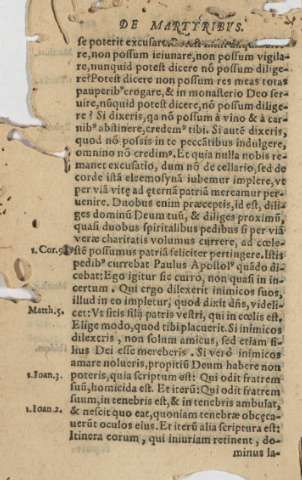 DE MARTYRIBVS.
se poterit excusare.
re, non possum ieiunare, non possum vigila-
re, nunquid potest dicere nō possum dilige-
re? Potest dicere non possum res meas totas
pauperibꝰ erogare, & in monasterio Deo ser-
uire, nūquid potest dicere, nō possum dilige-
re? Si dixeris, qa nō possum à vino & à car-
nibꝰ abstinere, credemꝰ tibi. Si autē dixeris,
quod nō possis in te peccātibus indulgere,
omnino nō credimꝰ. Et quia nulla nobis re-
manet excusatio, dum nō de cellario, sed de
corde istā eleemosynā iubemur implere, vt
per viā vitę ad ęternā patriā mereamur per-
uenire. Duobus enim pręceptis, id est, dili-
ges dominū Deum tuū, & diliges proximū,
quasi duobus spiritalibus pedibus si per viā
veræ charitatis volumus currere, ad cœle-
1. Cor. 9. stē possumus patriā feliciter pertingere. Istis
pedibꝰ currebat Paulus Apostolꝰ quādo di-
cebat: Ego igitur sic curro, non quasi in in-
certum. Qui ergo dilexerit inimicos suos,
illud in eo impletur, quod dixit dñs, videli-
Matth. 5. cet: Vt sitis filij patris vestri, qui in cœlis est.
Elige modo, quod tibi placuerit. Si inimicos
dilexeris, non solum amicus, sed etiam fi-
lius Dei esse mereberis. Si verò inimicos
amare nolueris, propitiū Deum habere non
1. Ioan. 3. poteris, quia scriptum est: Qui odit fratrem
suū, homicida est. Et iterū: Qui odit fratrem
suum, in tenebris est, & in tenebris ambulat,
1. Ioan. 2. & nescit quo eat, quoniam tenebræ obcęca-
uerūt oculos eius. Et iterū alia scriptura est:
Itinera eorum, qui iniuriam retinent, do-
minus la-